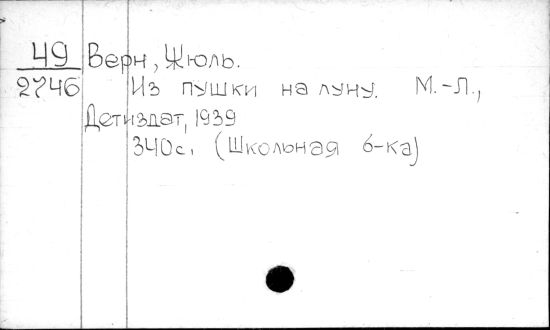 49 Верн, Жюль.
2746 Из пушки на луну. М.-Л.,
Детиздат, 1939
340с. (Школьная б-ка)